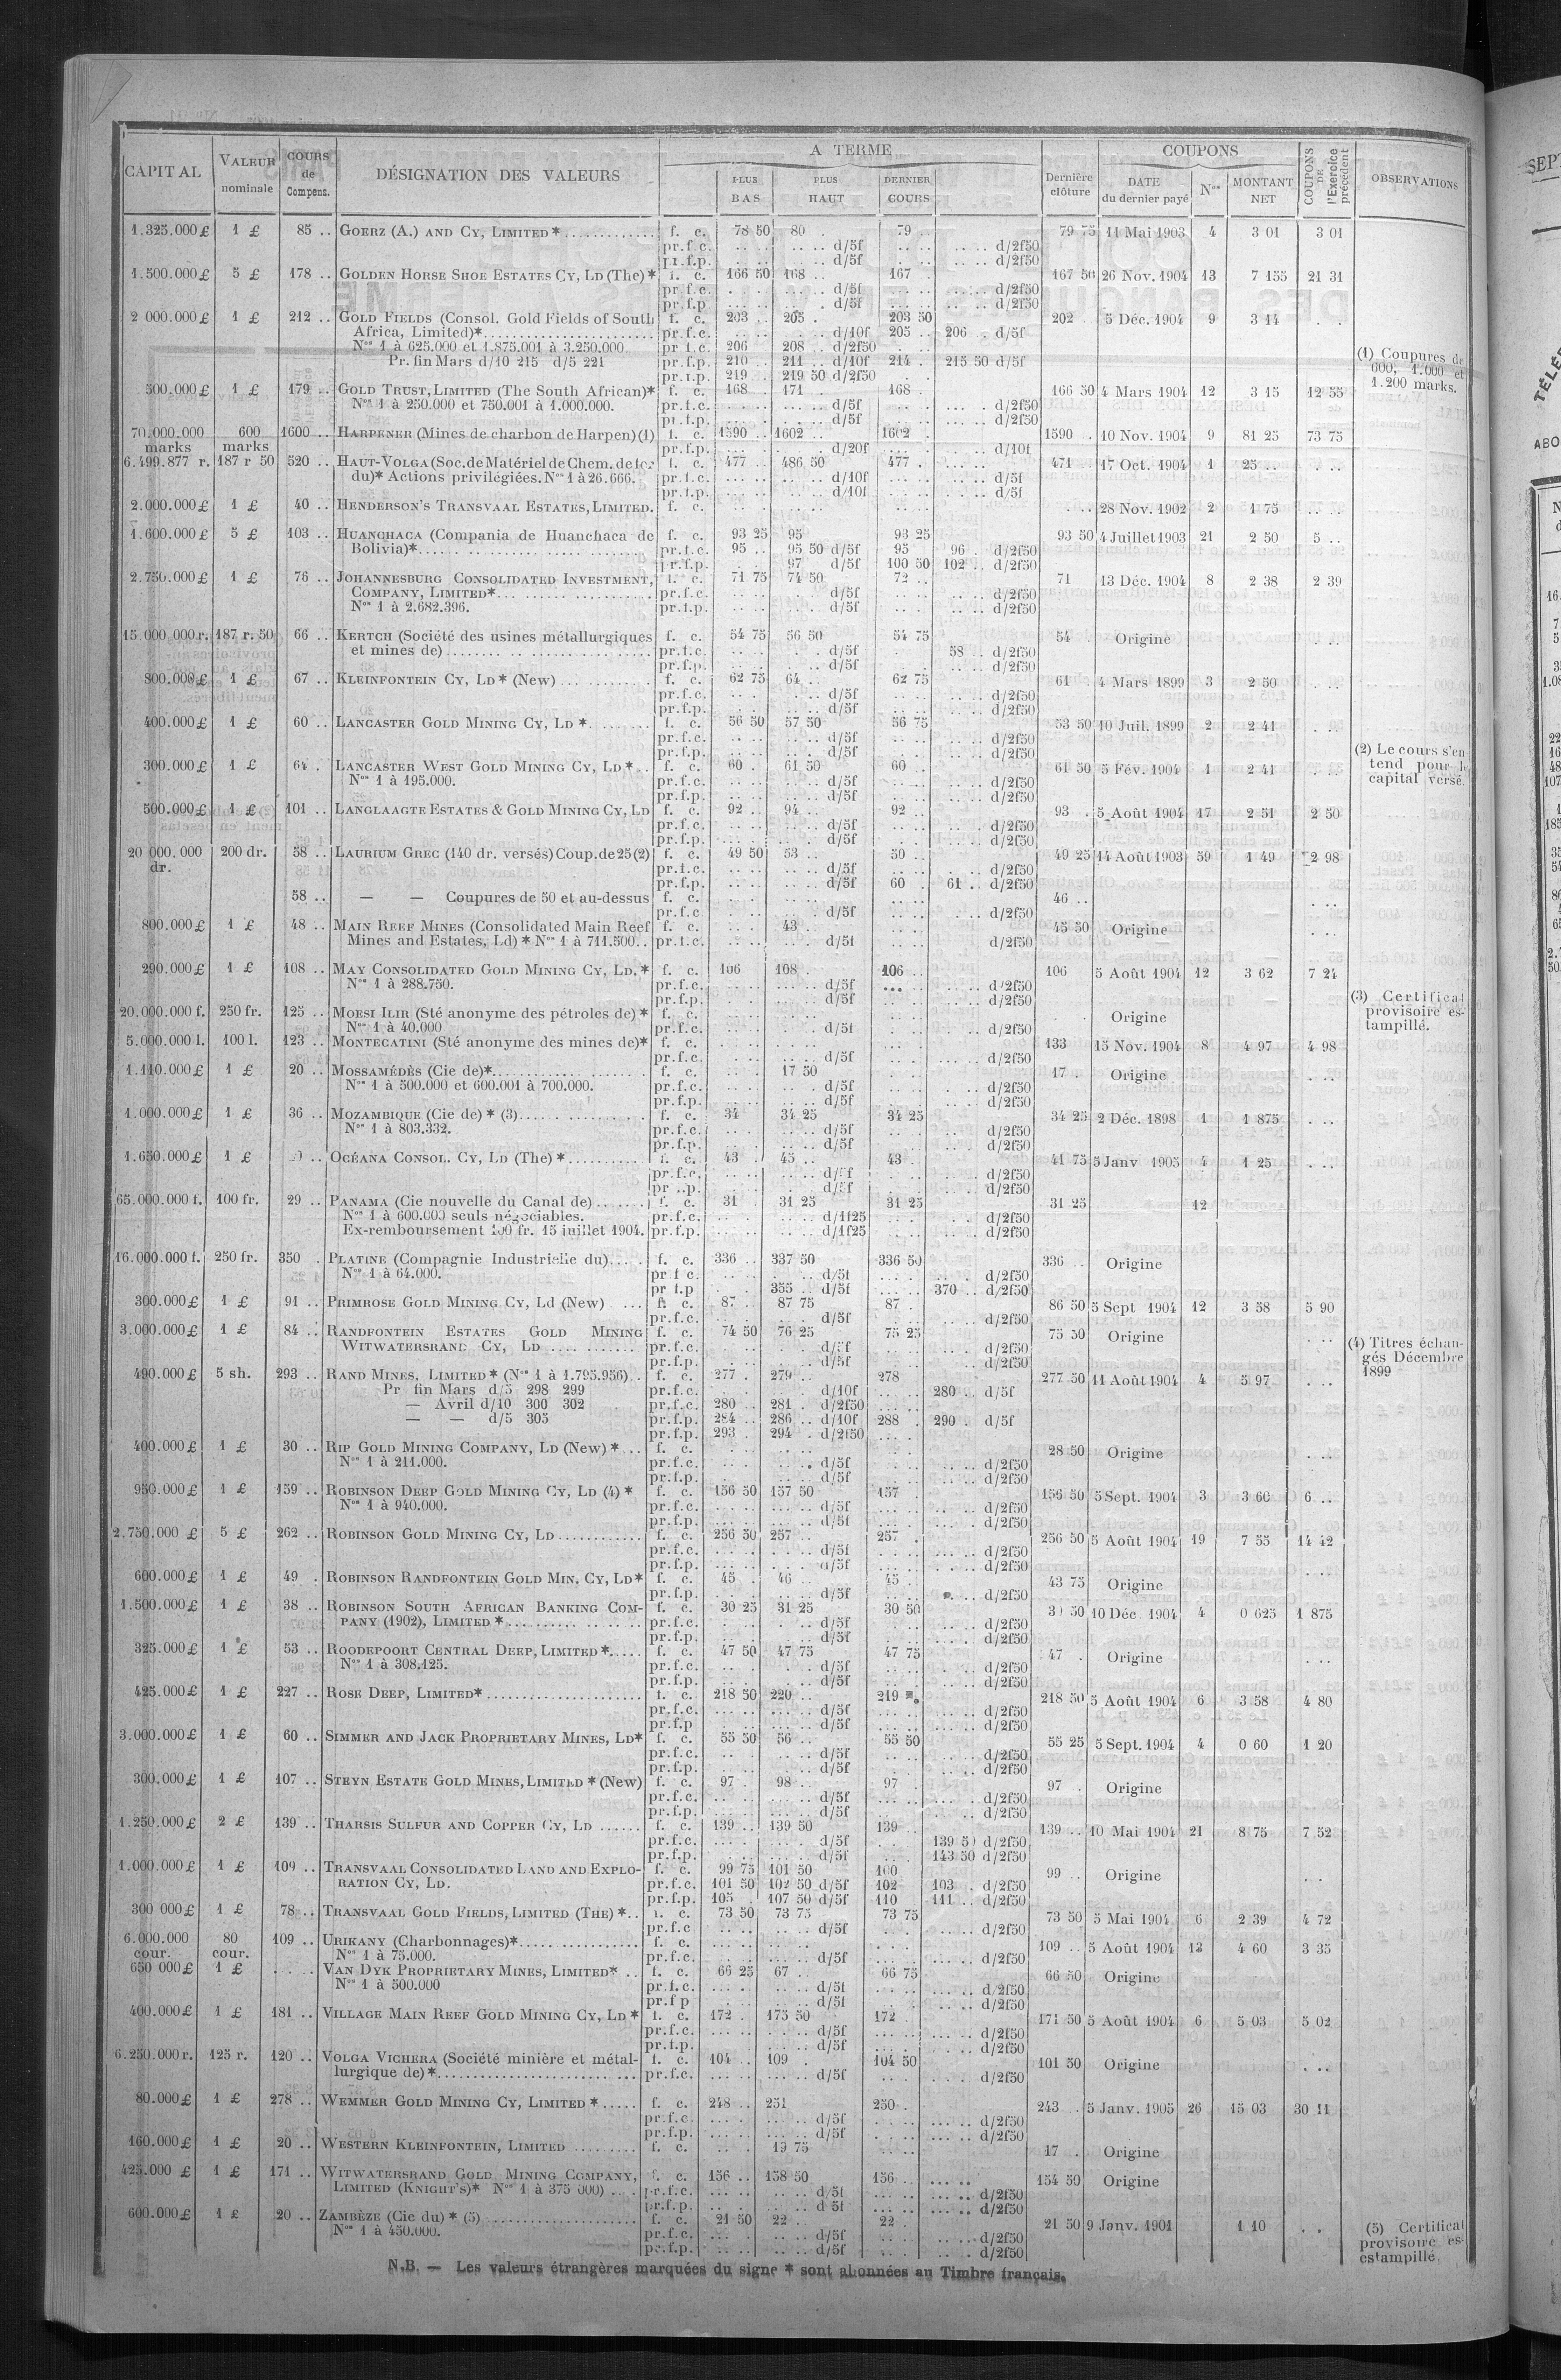 CAPITAL VALEUR nominale COURS de Compens. DÉSIGNATION DES VALEURS A TERME PLUS BAS PLUS HAUT DERNIER COURS Dernière clôture COUPONS DATE du dernier payé Nos MONTANT NET COUPONS DE l'Exercice précédent OBSERVATIONS
1.325.000 £ 1 £ 85 .. GOERZ (A.) AND CY, LIMITED * f. c. 78 50 80 . 79 .. 79 75 11 Mai 1903 4 3 01 3 01
pr.f.c. d/5f d/2f50
pr.f.p. d/5f d/2f50
1.500.000 £ 5 £ 178 .. GOLDEN HORSE SHOE ESTATES CY, LD (The) * f. c. 166 50 168 .. 167 . 167 50 26 Nov. 1904 13 7 155 21 31
pr.f.c. d/5f d/2f50
pr.f.p d/5f d/2f50
2 000.000 £ 1 £ 212 .. GOLD FIELDS (Consol. Gold Fields of South f. c. 203 .. 205 . 203 50 202 . 5 Déc. 1904 9 3 14
Africa, Limited)* pr.f.c. d/10f 205 .. 206 . d/5f
Nos 1 à 625.000 et 1.875.001 à 3.250.000 pr.f.c. 206 208 .. d/2f50
Pr. fin Mars d/10 215 d/5 221 pr.f.p. 210 .. 211 .. d/10f 214 . 215 50 d/5f
pr.f.p. 219 . 219 50 d/2f50
(1) Coupures de 600, 1.000 et 1.200 marks.
500.000 £ 1 £ 179 .. GOLD TRUST, LIMITED (The South African)* f. c. 168 .. 171 . 168 .. 166 50 4 Mars 1904 12 3 15 12 55
Nos 1 à 250.000 et 750.001 à 1.000.000. pr.f.c. d/5f d/2f50
pr.f.p. d/5f d/2f50
70.000.000 marks 600 marks 1600 .. HARPENER (Mines de charbon de Harpen) (1) f. c. 1590 .. 1602 .. 1602 . 1590 . 10 Nov. 1904 9 81 25 73 75
pr.f.p. d/20f d/10f
6.499.877 r. 187 r 50 520 .. HAUT-VOLGA (Soc. de Matériel de Chem. de fer f. c. 477 .. 486 50 477 . 471 . 17 Oct. 1904 1 25 ..
du)* Actions privilégiées. Nos 1 à 26.666. pr.f.c. d/10f d/5f
pr.f.p. d/10f d/5f
2.000.000 £ 1 £ 40 .. HENDERSON'S TRANSVAAL ESTATES, LIMITED. f. c. 28 Nov. 1902 2 1 75
1.600.000 £ 5 £ 103 .. HUANCHACA (Compania de Huanchaca de f. c. 93 25 95 93 25 93 50 4 Juillet 1903 21 2 50 5 ..
Bolivia)* pr.f.c. 95 .. 95 50 d/5f 95 96 . d/2f50
pr.f.p. 97 d/5f 100 50 102 .. d/2f50
2.750.000 £ 1 £ 76 .. JOHANNESBURG CONSOLIDATED INVESTMENT, f. c. 71 75 74 50 72 .. 71 13 Déc. 1904 8 2 38 2 39
COMPANY, LIMITED* pr.f.c. d/5f d/2f50
Nos 1 à 2.682.396. pr.f.p. d/5f d/2f50
15.000.000 r. 187 r. 50 66 .. KERTCH (Société des usines métallurgiques f. c. 54 75 56 50 54 75 54 Origine
et mines de) pr.f.c. d/5f 58 .. d/2f50
pr.f.p. d/5f d/2f50
800.000 £ 1 £ 67 .. KLEINFONTEIN CY, LD * (New) f. c. 62 75 64 .. 62 75 61 . 4 Mars 1899 3 2 50
pr.f.c. d/5f d/2f50
pr.f.p. d/5f d/2f50
400.000 £ 1 £ 60 .. LANCASTER GOLD MINING CY, LD * f. c. 56 50 57 50 56 75 53 50 10 Juil. 1899 2 2 41
pr.f.c. d/5f d/2f50
pr.f.p. d/5f d/2f50
(2) Le cours s'entend pour le capital versé.
300.000 £ 1 £ 64 . LANCASTER WEST GOLD MINING CY, LD * f. c. 60 . 61 50 60 .. 61 50 5 Fév. 1904 1 2 41
Nos 1 à 195.000. pr.f.c. d/5f d/2f50
pr.f.p. d/5f d/2f50
500.000 £ 1 £ 101 .. LANGLAAGTE ESTATES & GOLD MINING CY, LD f. c. 92 .. 94 .. 92 .. 93 . 5 Août 1904 17 2 51 2 50
pr.f.c. d/5f d/2f50
pr.f.p. d/5f d/2f50
20 000.000 dr. 200 dr. 58 .. LAURIUM GREC (140 dr. versés) Coup. de 25 (2) f. c. 49 50 53 .. 50 .. 49 25 14 Août 1903 59 1 49 2 98
pr.f.c. d/5f d/2f50
pr.f.p. d/5f 60 . 61 .. d/2f50
58 .. — — Coupures de 50 et au-dessus f. c. 46 ..
pr.f.c d/5f d/2f50
800.000 £ 1 £ 48 .. MAIN REEF MINES (Consolidated Main Reef f. c. 43 . 45 50 Origine
Mines and Estates, Ld) * Nos 1 à 711.500.. pr.f.c. d/5f d/2f50
290.000 £ 1 £ 108 .. MAY CONSOLIDATED GOLD MINING CY, LD. * f. c. 106 108 . 106 .. 106 5 Août 1904 12 3 62 7 24
Nos 1 à 288.750. pr.f.c. d/5f d/2f50
pr.f.p. d/5f d/2f50
(3) Certificat provisoire estampillé.
20.000.000 f. 250 fr. 125 .. MOESI ILIR (Sté anonyme des pétroles de) * f. c. Origine
Nos 1 à 40.000 pr.f.c. d/5f d/2f50
5.000.000 l. 100 l. 123 .. MONTECATINI (Sté anonyme des mines de)* f. c. 133 15 Nov. 1904 8 4 97 4 98
pr.f.c. d/5f d/2f50
1.110.000 £ 1 £ 20 .. MOSSAMÉDÈS (Cie de)* f. c. 17 50 17 . Origine
Nos 1 à 500.000 et 600.001 à 700.000. pr.f.c. d/5f d/2f50
pr.f.p. d/5f d/2f50
1.000.000 £ 1 £ 36 .. MOZAMBIQUE (Cie de) * (3) f. c. 34 34 25 34 25 34 25 2 Déc. 1898 1 1 875
Nos 1 à 803.332. pr.f.c. d/5f d/2f50
pr.f.p. d/5f d/2f50
1.650.000 £ 1 £ OCÉANA CONSOL. CY, LD (The) * f. c. 43 . 45 .. 43 . 41 75 5 Janv 1905 4 1 25
pr.f.c. d/5f d/2f50
d/5f d/2f50
65.000.000 f. 100 fr. 29 .. PANAMA (Cie nouvelle du Canal de) f. c. 31 31 25 31 25 31 25 12
Nos 1 à 600.000 seuls négociables. pr.f.c. d/1f25 d/2f50
Ex-remboursement 100 fr. 15 juillet 1904. pr.f.p. d/1f25 d/2f50
16.000.000 f. 250 fr. 350 . PLATINE (Compagnie Industrielle du) f. c. 336 .. 337 50 336 50 336 .. Origine
Nos 1 à 64.000. pr f c. d/5f d/2f50
pr f.p 355 .. d/5f 370 .. d/2f50
300.000 £ 1 £ 91 .. PRIMROSE GOLD MINING CY, Ld (New) f. c. 87 .. 87 75 87 . 86 50 5 Sept 1904 12 3 58 5 90
pr.f.c. d/5f d/2f50
3.000.000 £ 1 £ 84 .. RANDFONTEIN ESTATES GOLD MINING f. c. 74 50 76 25 75 25 75 50 Origine
WITWATERSRAND CY, LD pr.f.c. d/5f d/2f50
pr.f.p. d/5f d/2f50
(4) Titres échangés Décembre 1899
490.000 £ 5 sh. 293 .. RAND MINES, LIMITED * (Nos 1 à 1.795.956) f. c. 277 . 279 .. 278 277 50 11 Août 1904 4 5 97
Pr fin Mars d/5 298 299 pr.f.c. d/10f 280 .. d/5f
— Avril d/10 300 302 pr.f.c. 280 .. 281 . d/2f50
— — d/5 305 pr.f.p. 284 .. 286 .. d/10f 288 . 290 . d/5f
pr.f.p. 293 . 294 . d/2f50
400.000 £ 1 £ 30 .. RIP GOLD MINING COMPANY, LD (New) * f. c. 28 50 Origine
Nos 1 à 211.000. pr.f.c. d/5f d/2f50
pr.f.p. d/5f d/2f50
950.000 £ 1 £ 159 .. ROBINSON DEEP GOLD MINING CY, LD (4) * f. c. 156 50 157 50 157 . 156 50 5 Sept. 1904 3 3 60 6 ..
Nos 1 à 940.000. pr.f.c. d/5f d/2f50
pr.f.p. d/5f d/2f50
2.750.000 £ 5 £ 262 .. ROBINSON GOLD MINING CY, LD f. c. 256 50 257 .. 257 . 256 50 5 Août 1904 19 7 55 14 42
pr.f.c. d/5f d/2f50
pr.f.p. d/5f d/2f50
600.000 £ 1 £ 49 . ROBINSON RANDFONTEIN GOLD MIN. CY, LD* f. c. 45 . 46 .. 45 . 43 75 Origine
pr.f.p. d/5f d/2f50
1.500.000 £ 1 £ 38 .. ROBINSON SOUTH AFRICAN BANKING COM- f. c. 30 25 31 25 30 50 50 10 Déc. 1904 4 0 625 1 875
PANY (1902), LIMITED * pr.f.c. d/5f d/2f50
pr.f.p. d/5f d/2f50
325.000 £ 1 £ 53 .. ROODEPOORT CENTRAL DEEP, LIMITED * f. c. 47 50 47 75 47 75 47 . Origine
Nos 1 à 308.125. pr.f.c. d/5f d/2f50
pr.f.p. d/5f d/2f50
425.000 £ 1 £ 227 .. ROSE DEEP, LIMITED* f. c. 218 50 220 .. 219 218 50 5 Août 1904 6 3 58 4 80
pr.f.c. d/5f d/2f50
pr.f.p d/5f d/2f50
3.000.000 £ 1 £ 60 .. SIMMER AND JACK PROPRIETARY MINES, LD* f. c. 55 50 56 .. 55 50 55 25 5 Sept. 1904 4 0 60 1 20
pr.f.c. d/5f d/2f50
pr.f.p. d/5f d/2f50
300.000 £ 1 £ 107 .. STEYN ESTATE GOLD MINES, LIMITED * (New) f. c. 97 . 98 .. 97 . 97 .. Origine
pr.f.c. d/5f d/2f50
pr.f.p. d/5f d/2f50
1.250.000 £ 2 £ 139 .. THARSIS SULFUR AND COPPER CY, LD f. c. 139 .. 139 50 139 .. 139 .. 10 Mai 1904 21 8 75 7 52
pr.f.c. d/5f 139 50 d/2f50
pr.f.p. d/5f 143 50 d/2f50
1.000.000 £ 1 £ 109 .. TRANSVAAL CONSOLIDATED LAND AND EXPLO- f. c. 99 75 101 50 100 99 .. Origine
RATION CY, LD. pr.f.c. 101 50 102 50 d/5f 102 103 . d/2f50
pr.f.p. 105 . 107 50 d/5f 110 . 111 .. d/2f50
300 000 £ 1 £ 78 .. TRANSVAAL GOLD FIELDS, LIMITED (THE) * f. c. 73 50 73 75 73 75 73 50 5 Mai 1904 6 2 39 4 72
pr.f.c d/5f d/2f50
6.000.000 cour. 80 cour. 109 .. URIKANY (Charbonnages)* f. c. 109 .. 5 Août 1904 13 4 60 3 35
Nos 1 à 75.000. pr.f.c. d/5f d/2f50
650 000 £ 1 £ VAN DYK PROPRIETARY MINES, LIMITED* f. c. 66 25 67 . 66 75 66 50 Origine
Nos 1 à 500.000 pr.f.c. d/5f d/2f50
pr.f p d/5f d/2f50
400.000 £ 1 £ 181 .. VILLAGE MAIN REEF GOLD MINING CY, LD * f. c. 172 . 173 50 172 . 171 50 5 Août 1904 6 5 03 5 02
pr.f.c. d/5f d/2f50
pr.f.p. d/5f d/2f50
6.250.000 r. 125 r. 120 .. VOLGA VICHERA (Société minière et métal- f. c. 104 .. 109 . 104 50 101 50 Origine
lurgique de) * pr.f.c. d/5f d/2f50
80.000 £ 1 £ 278 .. WEMMER GOLD MINING CY, LIMITED * f. c. 248 .. 251 250 . 243 . 5 Janv. 1905 26 15 03 30 11
pr.f.c. d/5f d/2f50
pr.f.p. d/5f d/2f50
160.000 £ 1 £ 20 .. WESTERN KLEINFONTEIN, LIMITED f. c. 19 75 17 . Origine
425.000 £ 1 £ 171 .. WITWATERSRAND GOLD MINING COMPANY, f. c. 156 .. 158 50 156 .. 154 50 Origine
LIMITED (KNIGHT'S)* Nos 1 à 375 000) pr.f.c. d/5f d/2f50
pr.f.p. d 5f d/2f50
600.000 £ 1 £ 20 .. ZAMBÈZE (Cie du) * (5) f. c. 21 50 22 . 22 . 21 50 9 Janv. 1901 1 10
Nos 1 à 450.000. pr.f.c. d/5f d/2f50
pr.f.p. d/5f d/2f50
(5) Certificat provisoire estampillé
N.B. — Les valeurs étrangères marquées du signe * sont abonnées au Timbre français.